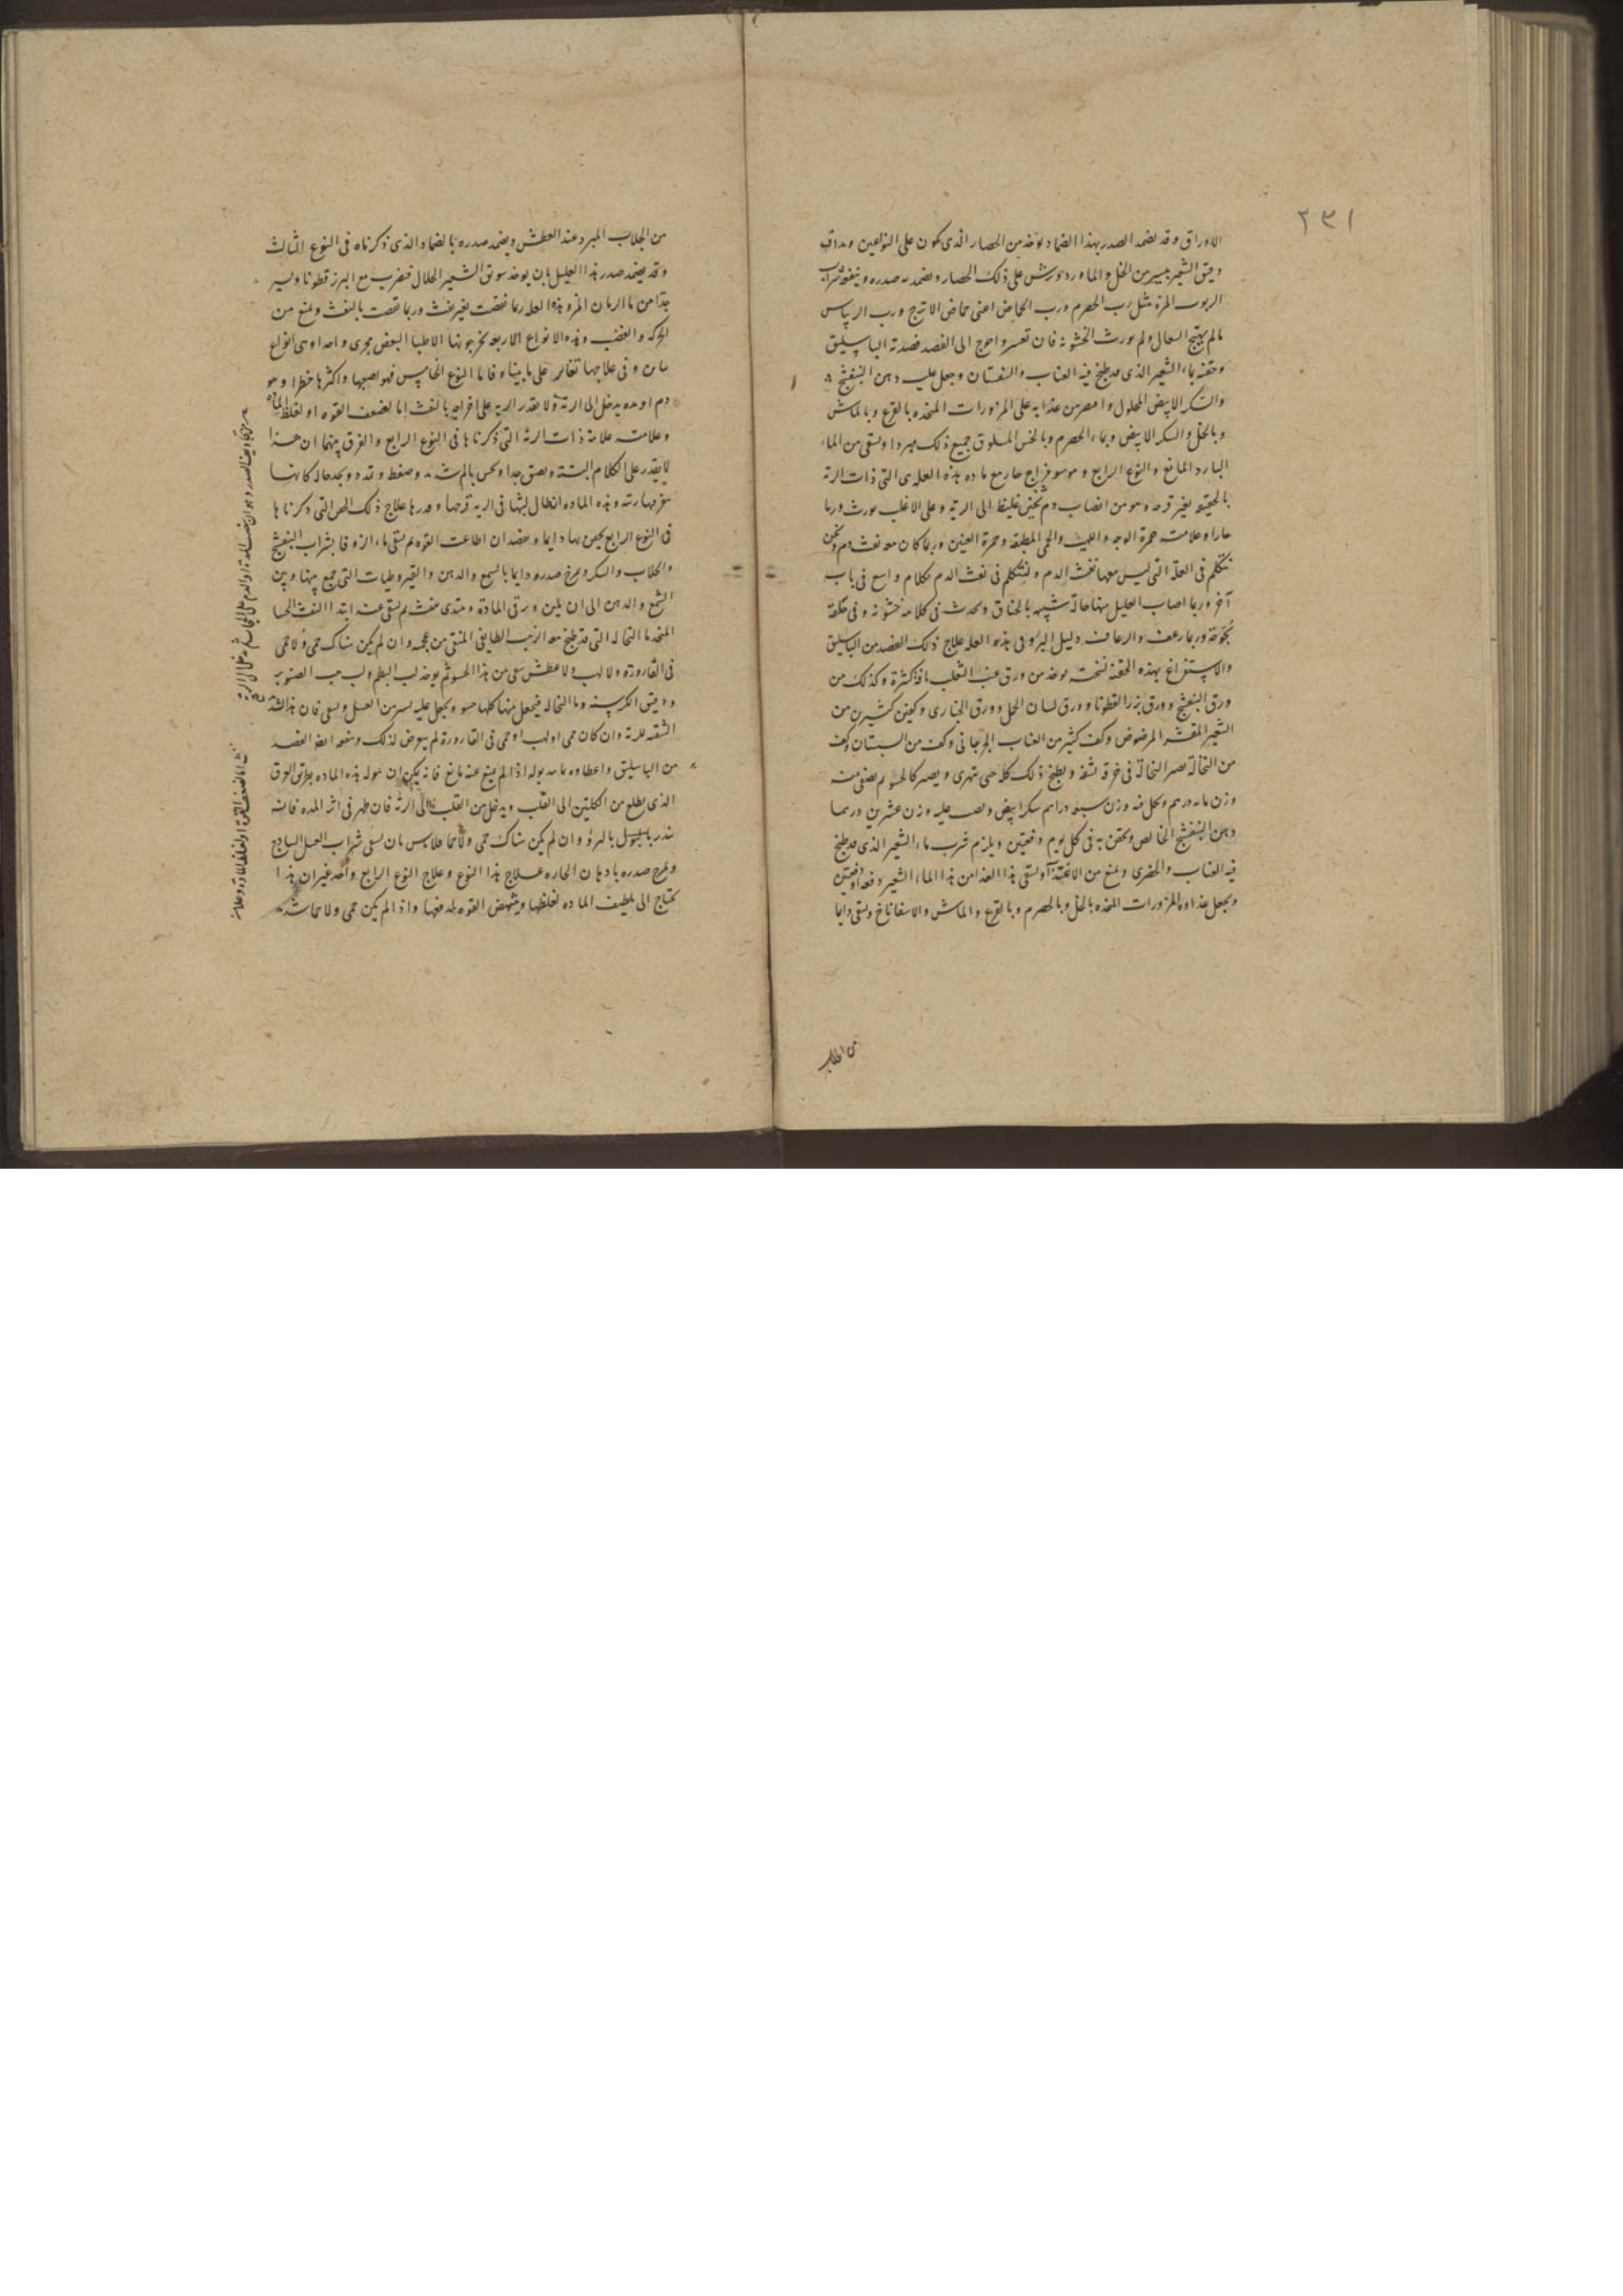 ٢٣١
الاوراق وقد يضمد الصدر بهذا الضماد يوخذ من الحصار الذى يكون على النواعين ويداف
دقيق الشعير بيسير من الخل والماورد ويرش على ذلك الحصار ويضمد به صدره وينفعه شراب
الربوب المزة مثل رب الحصرم ورب الحماض اعنى حماض الاترج ورب الريباس
مالم يهيج السعال ولم يورث الخشونة فان تعسر واحوج الى الفصد فصدته الباسيليق
وحقنه بماء الشعير الذى قد طبخ فيه العناب والسفستان وجعل عليه دهن البنفسج
والسكر الابيض المحلول واقتصر من غذايه على المزورات المتخذه بالقرع وبالماش
وبالخل والسكر الابيض وبماء الحصرم وبالخس المسلوق جميع ذلك مبردا ويسقى من الماء
البارد المانع والنوع الرابع وهو سو مزاج حار مع ماده هذه العله هى التى ذات الرئة
بالحقيقة لغير قرحه وهو من انصباب دم ثخين غليظ الى الرية وعلى الاغلب يورث ورما
حارا وعلامته حمرة الوجه واللهيب والحمى المطبقة وحمرة العينين وربما كان معه نفث دم ونحن
نتكلم فى العلة التى ليس معها نفث الدم ونتكلم فى نفث الدم بكلام واسع فى باب
آخر وربما اصاب العليل منها حالة شبيهه بالخناق ويحدث فى كلامه خشونه وفى حلقه
بحوحة وربما رعف والرعاف دليل البرؤ وفى هذه العله علاج ذلك الفصد من الباسليق
والاستفراغ بهذه الحقنة نسخته يوخذ من ورق عنب الثعلب باقة كثيرة وكذلك من
ورق البنفسج وورق بزر القطونا وورق لسان الحمل وورق الخبازى وكفين كثيرين من
الشعير المقشر المرضوض وكف كثير من العناب الجرجانى وكف من السبستان وكف
من النخالة تصر النخالة فى خرقه شفه ويطبخ ذلك كله حتى يتهرى ويصير كالحسو ثم يصفى منه
وزن مايه درهم ويحل فيه وزن سبعه دراهم سكر ابيض ويصب عليه وزن عشرين درهما
دهن البنفسج الخالص ويحقن به فى كل يوم دفعتين ويلزم شرب ماء الشعير الذى قد طبخ
فيه العناب والحضرى ويمنع من الاغذية او يسقى بدل الغذا من هذا الماء الشعير دفعه او دفعتين
ويجعل غذاوه المزورات المتخذه بالخل وبالحصرم وبالقرع والماش والاسفاناخ ويسقى دايما
من الجلاب
من الجلاب المبرد عند العطش ويضمد صدره بالضماد الذى ذكرناه فى النوع الثالث
وقد يضمد صدر هذا العليل بان يوخذ سويق الشعير الحلال فيضرب مع البزر قطونا ويسير
جدا من ماء الرمان المز وهذه العله ربما نقصت بغير نفث وربما نقصت بالنفث ويمنع من
الحركه والغضب وهذه الانواع الاربعه يجرونها الاطبا البعض مجرى واحدا وهى انواع
تباين وفى علاجها تغاير على ما بيناه فاما النوع الخامس فهو اصعبها واكثرها خطرا وهو
دم او مده يدخل الى الرئة ولا يقدر الريه على اخراجه بالنفث اما لضعف القوه او لغلظ المادة
وعلامته علامة ذات الرئة التى ذكرناها فى النوع الرابع والفرق بينهما ان هذا
لا يقدر على الكلام البتة ويضيق جدا ويحس بالم شديد وضغط وتمدد ويجد حاله كانها
فى النوع الرابع يحقن بها دايما ويفصد ان اطاعت القوه ثم يسقى ماء الزوفا بشراب البنفسج
والجلاب والسكر ويمرخ صدره دايما بالشمع والدهن والقيروطيات التى جمع بينها وبين
الشمع والدهن الى ان يلين ويرق المادة ويبتدى ينفث ثم يسقى عند ابتدا النفث الحسا
المتخذ بماء النخاله التى قد طبخ معه الزبيب الطايفى المنقى من عجمه وان لم يكن هناك حمى ولا حمى
فى القارورة ولا لهب ولا عطش سقى من هذا الحسو ثم يوخذ لب البطم ولب حب الصنوبر
ودقيق الكرسنه وماء النخاله فيجعل منها كلها حسو ويجعل عليه يسير من العسل ويسقى فان هذا اشد
التنقيه للرئة وان كان حمى او لهب او حمى فى القارورة لم يتعرض لذلك ونفعه ايضا الفصد
من الباسليق واعطاوه ما يدر بوله اذا لم يمنع عنه مانع فانه يمكن ان يتحول هذه الماده بطريق العرق
الذى يطلع من الكليتين الى القلب ويدخل من القلب الى الرئة فان ظهر فى اثر المده فانه
ينذر بالبول بالبرؤ وان لم يكن هناك حمى ولا حما فلا باس بان يسقى شراب العسل الساذج
ويمرخ صدره بادهان الحاره علاج هذا النوع وعلاج النوع الرابع واحد غير ان هذا
يحتاج الى تلطيف الماده لغلظها وينهض القوه لدفعها واذا لم يكن حمى ولا حما